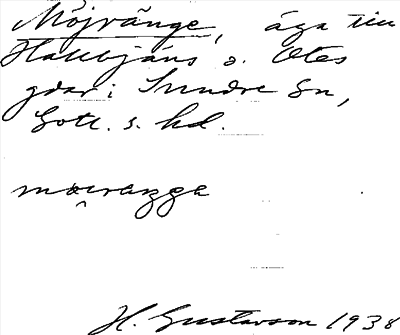 Möjvänge, äga till
Hallbjäns o. Otes
gdar i Sundre sn,
Gotl. s. hd.
moırangga
H. Gustavson 1938